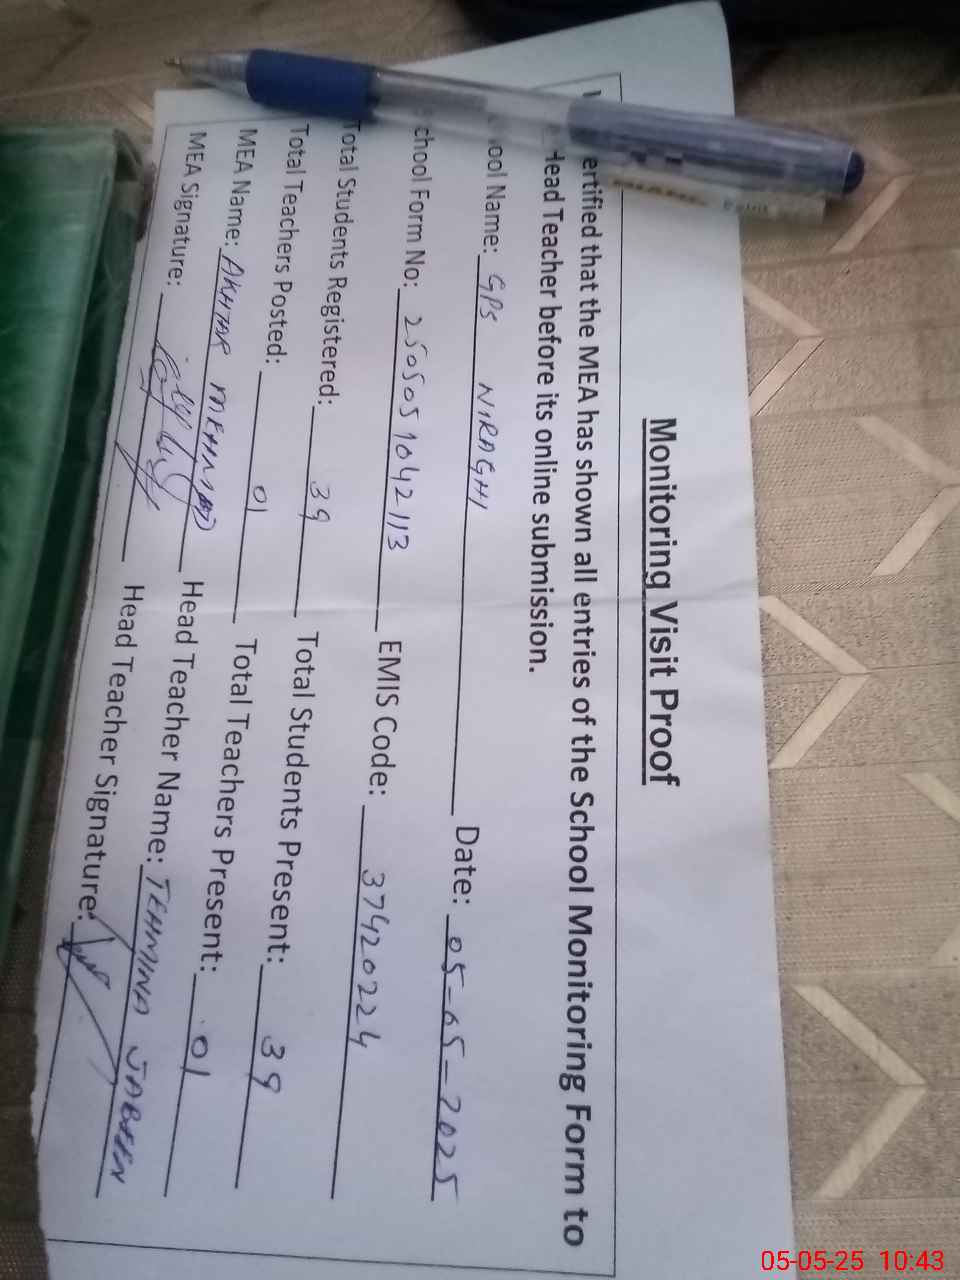 Monitoring Visit Proof
ertified that the MEA has shown all entries of the School Monitoring Form to
Head Teacher before its online submission.
ool Name: GPS NIRAGHI Date: 05-05-2025
chool Form No: 2505051042113 EMIS Code: 37420224
Total Students Registered: 39 Total Students Present: 39
Total Teachers Posted: 01 Total Teachers Present: 01
MEA Name: AKHTAR MEHMOOD Head Teacher Name: TEHMINA JABEEN
MEA Signature: Head Teacher Signature:
05-05-25 10:43